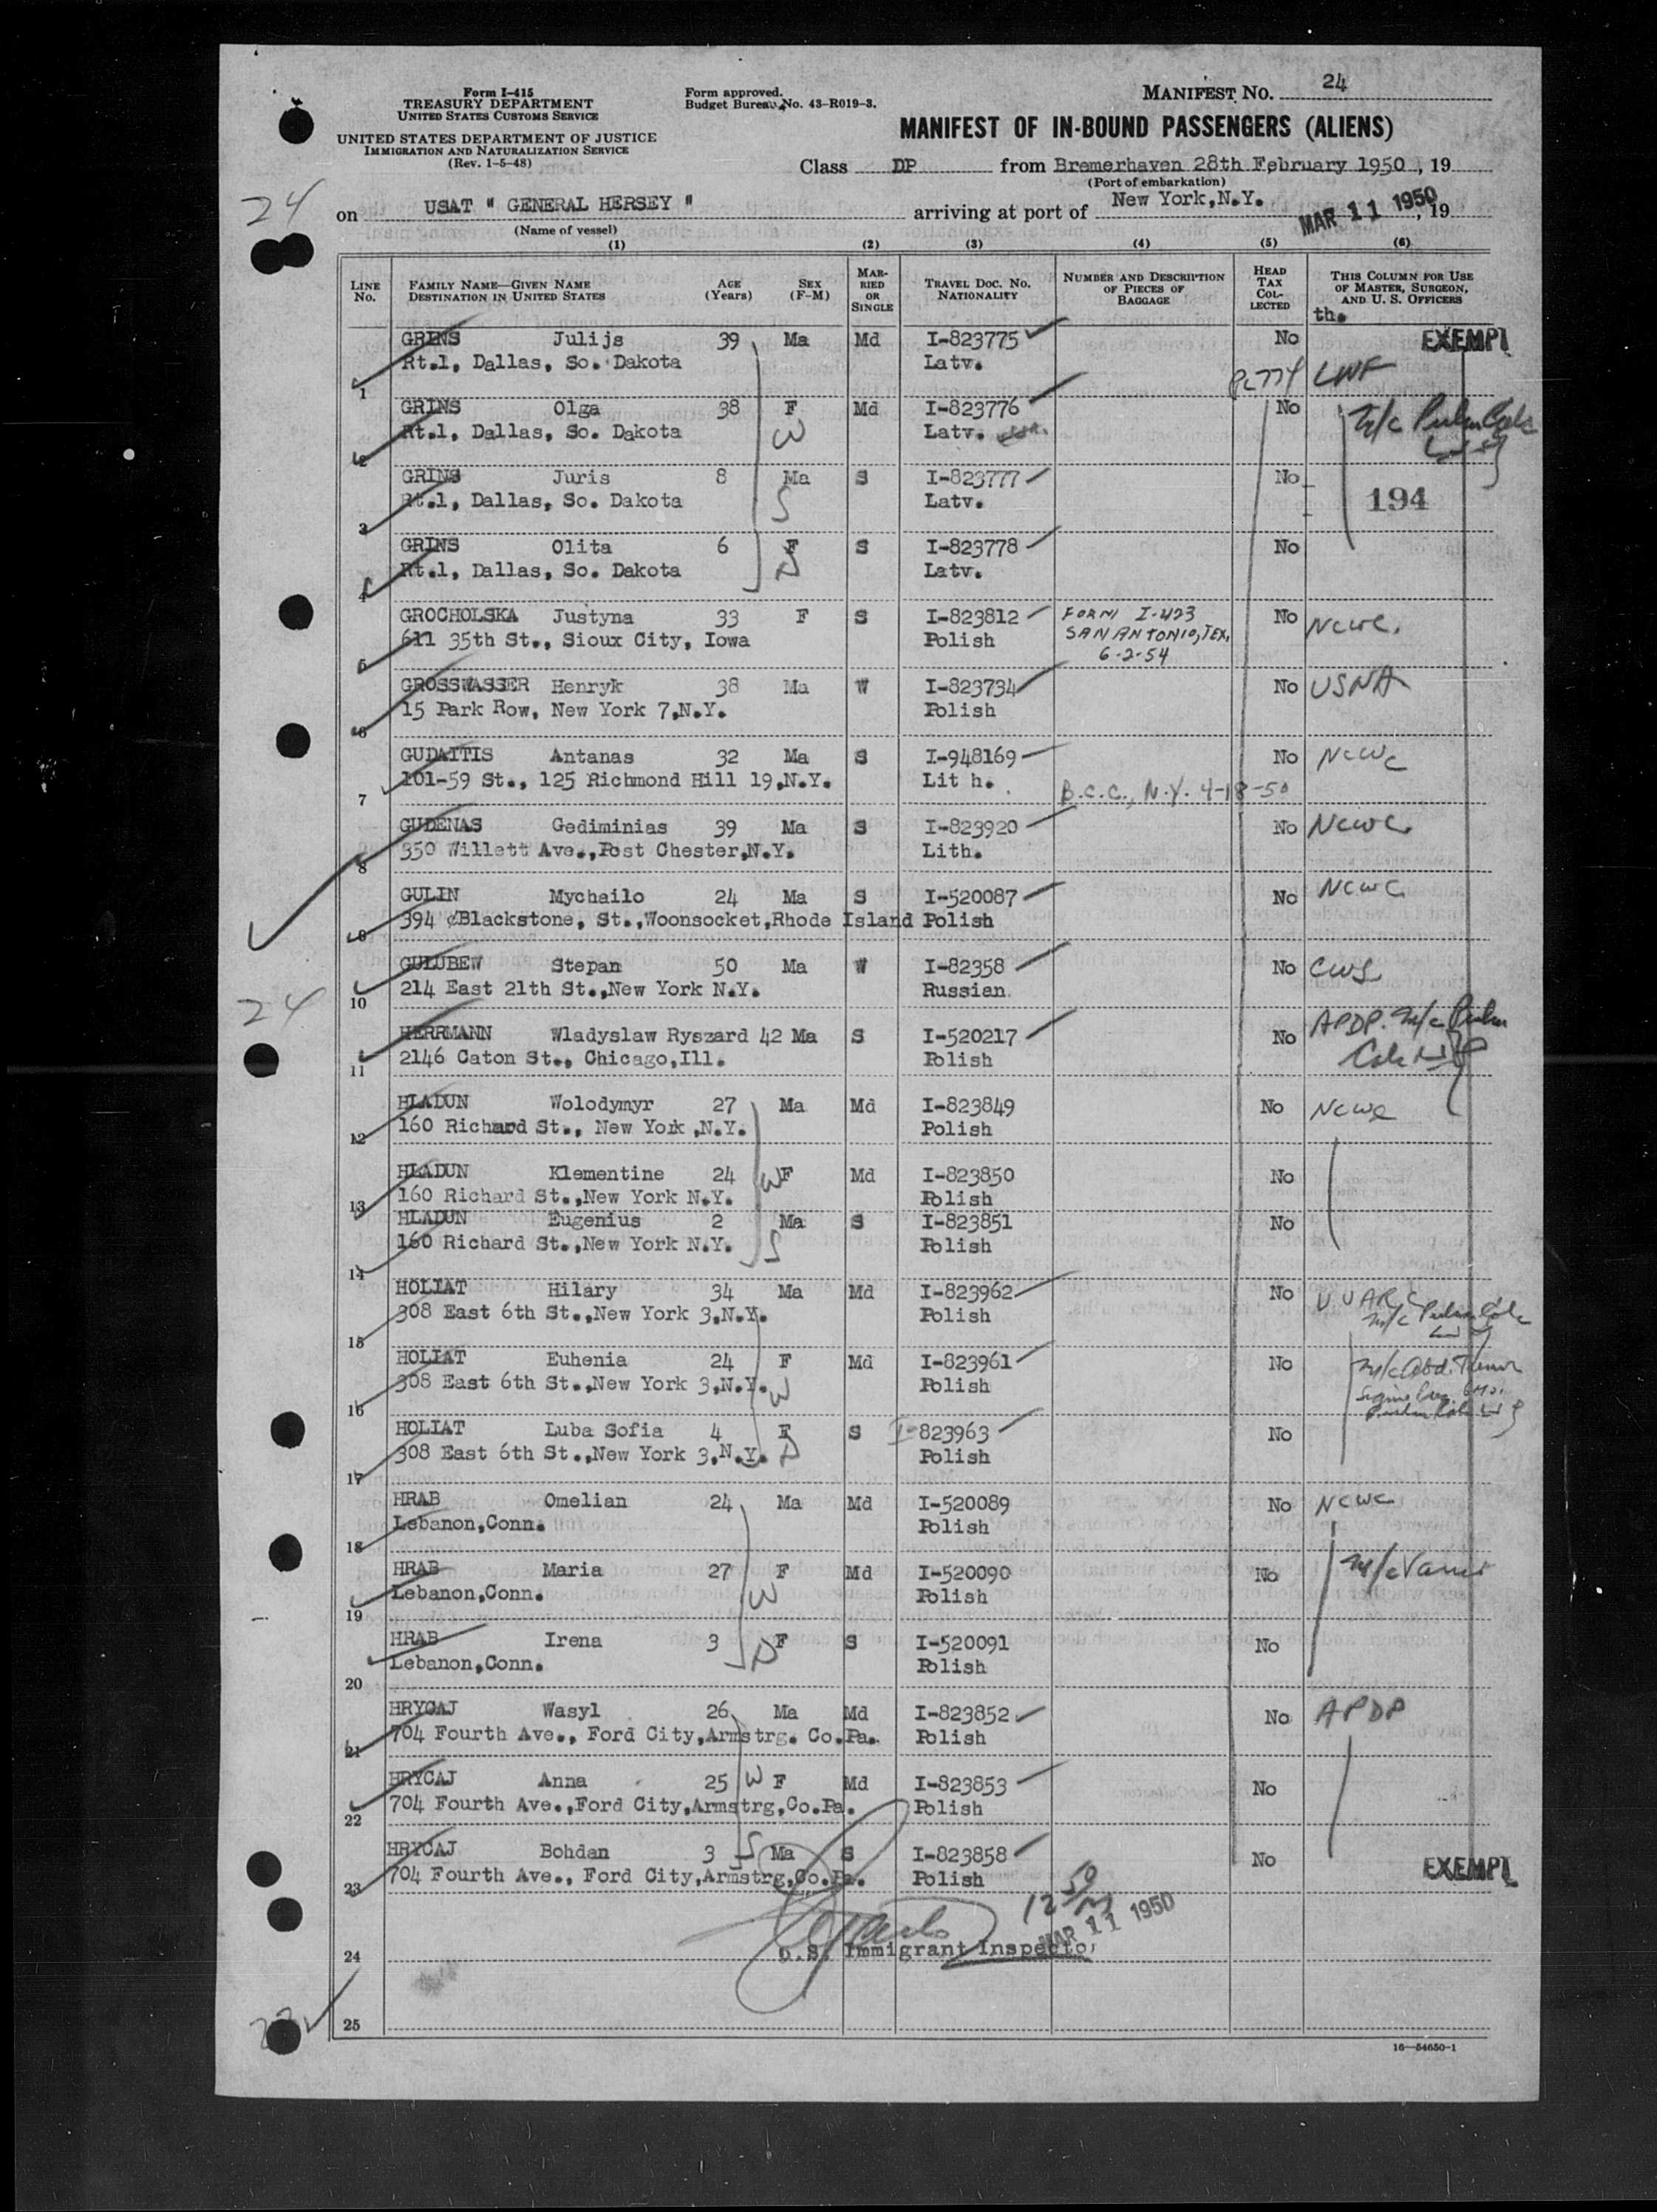 Form I-415
TREASURY DEPARTMENT
UNITED STATES CUSTOMS SERVICE
UNITED STATES DEPARTMENT OF JUSTICE
IMMIGRATION AND NATURALIZATION SERVICE
(Rev. 1-5-48)
Form approved.
Budget Bureau No. 43-R019-3.
MANIFEST NO. 24
MANIFEST OF IN-BOUND PASSENGERS (ALIENS)
Class DP from Bremerhaven 28th February 1950, 19
(Port of embarkation)
24
on USAT " GENERAL HERSEY " arriving at port of New York,N.Y. MAR 11 1950, 19
(Name of vessel)
(1) (2) (3) (4) (5) (6)
LINE No. FAMILY NAME—GIVEN NAME DESTINATION IN UNITED STATES AGE (Years) SEX (F-M) MARRIED OR SINGLE TRAVEL DOC. NO. NATIONALITY NUMBER AND DESCRIPTION OF PIECES OF BAGGAGE HEAD TAX COLLECTED THIS COLUMN FOR USE OF MASTER, SURGEON, AND U. S. OFFICERS
th.
GRINS Julijs 39 Ma Md I-823775 No EXEMPT
Rt.1, Dallas, So. Dakota Latv.
1 LWF
GRINS Olga 38 F Md I-823776 No
Rt.1, Dallas, So. Dakota W Latv.
2
GRINS Juris 8 Ma S I-823777 No
Rt.1, Dallas, So. Dakota S Latv. 194
3
GRINS Olita 6 F S I-823778 No
Rt.1, Dallas, So. Dakota D Latv.
4
GROCHOLSKA Justyna 33 F S I-823812 FORM I-423 No NCWC.
611 35th St., Sioux City, Iowa Polish SAN ANTONIO, TEX,
5 6-2-54
GROSSWASSER Henryk 38 Ma W I-823734 No USNA
15 Park Row, New York 7,N.Y. Polish
6
GUDAITIS Antanas 32 Ma S I-948169 No NCWC
101-59 St., 125 Richmond Hill 19,N.Y. Lit h. B.C.C., N.Y. 4-18-50
7
GUDENAS Gediminias 39 Ma S I-823920 No NCWC.
350 Willett Ave.,Post Chester,N.Y. Lith.
8
GULIN Mychailo 24 Ma S I-520087 No NCWC
394 Blackstone, St.,Woonsocket,Rhode Island Polish
9
GULUBEW Stepan 50 Ma W I-82358 No CWS
214 East 21th St.,New York N.Y. Russian
10
24
HERRMANN Wladyslaw Ryszard 42 Ma S I-520217 No APDP.
2146 Caton St., Chicago,Ill. Polish
11
HLADUN Wolodymyr 27 Ma Md I-823849 No NCWC
160 Richard St., New York ,N.Y. Polish
12
HLADUN Klementine 24 W F Md I-823850 No
160 Richard St.,New York N.Y. Polish
13
HLADUN Eugenius 2 Ma S I-823851 No
160 Richard St.,New York N.Y. S Polish
14
HOLIAT Hilary 34 Ma Md I-823962 No UUARC
308 East 6th St.,New York 3,N.Y. Polish
15
HOLIAT Euhenia 24 F Md I-823961 No
308 East 6th St.,New York 3,N.Y. W Polish
16
HOLIAT Luba Sofia 4 F S I-823963 No
308 East 6th St.,New York 3,N.Y. D Polish
17
HRAB Omelian 24 Ma Md I-520089 No NCWC
Lebanon,Conn. Polish
18
HRAB Maria 27 F Md I-520090 No
Lebanon,Conn. W Polish
19
HRAB Irena 3 F S I-520091 No
Lebanon,Conn. D Polish
20
HRYCAJ Wasyl 26 Ma Md I-823852 No APDP
704 Fourth Ave., Ford City,Armstrg. Co.Pa. Polish
21
HRYCAJ Anna 25 W F Md I-823853 No
704 Fourth Ave.,Ford City,Armstrg,Co.Pa. Polish
22
HRYCAJ Bohdan 3 S Ma S I-823858 No
704 Fourth Ave., Ford City,Armstrg,Co.Pa. Polish EXEMPT
23
MAR 11 1950
U.S. Immigrant Inspector
24
25
16—54650-1